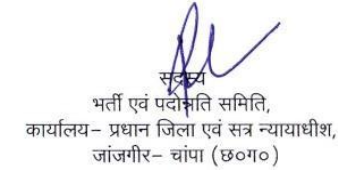 सदस्य
भर्ती एवं पदोन्नति समिति,
कार्यालय– प्रधान जिला एवं सत्र न्यायाधीश,
जांजगीर– चांपा (छ०ग०)